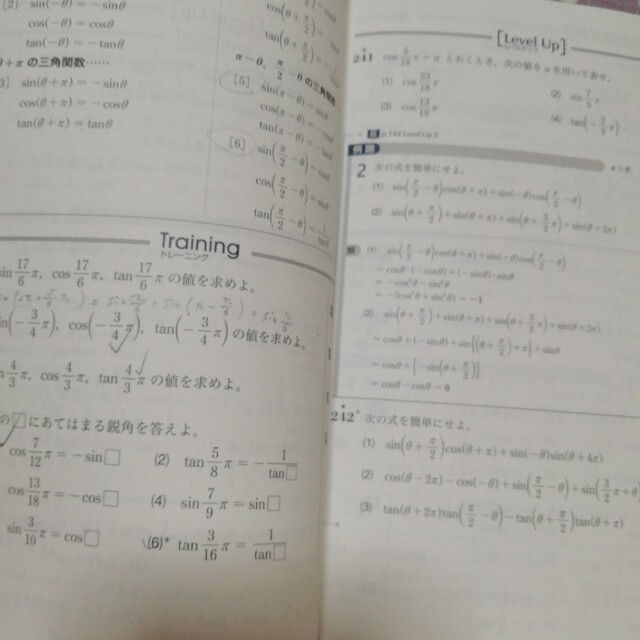 [2] sin(−θ) = −sinθ
cos(−θ) = cosθ
tan(−θ) = −tanθ
θ+π の三角関数……
[3] sin(θ+π) = −sinθ
cos(θ+π) = −cosθ
tan(θ+π) = tanθ
cos(θ+
tan(θ+
π−θ, π/2−θ の三角関数
[5] sin(π−θ) = sinθ
cos(π−θ) =
tan(π−θ) =
[6] sin(π/2−θ) = cosθ
cos(π/2−θ) =
tan(π/2−θ) = 1/tanθ
Training
トレーニング
sin 17/6 π, cos 17/6 π, tan 17/6 π の値を求めよ。
sin(−3/4 π), cos(−3/4 π), tan(−3/4 π) の値を求めよ.
4/3 π, cos 4/3 π, tan 4/3 π の値を求めよ。
の□にあてはまる鋭角を答えよ。
cos 7/12 π = −sin□ (2) tan 5/8 π = −1/tan□
cos 13/18 π = −cos□ (4) sin 7/9 π = sin□
sin 3/10 π = cos□ (6)* tan 3/16 π = 1/tan□
[Level Up]
241 cos 5/18 π = a とおくとき, 次の値を a を用いて表せ.
(1) cos 23/18 π (2) sin
(3) cos 13/18 π (4) tan
2 次の式を簡単にせよ.
(1) sin(π/2−θ)cos(θ+π)+sin(−θ)cos(π/2−θ)
(2) sin(θ+π/2)+sin(θ+π)+sin(θ+3/2 π)+sin(θ+2π)
(1) sin(π/2−θ)cos(θ+π)+sin(−θ)cos(π/2−θ)
=cosθ·(−cosθ)+(−sinθ)·sinθ
=−cos²θ−sin²θ
=−(cos²θ+sin²θ)=−1
(2) sin(θ+π/2)+sin(θ+π)+sin(θ+3/2 π)+sin(θ+2π)
=cosθ+(−sinθ)+sin{(θ+π/2)+π}+sinθ
=cosθ+{−sin(θ+π/2)}
=cosθ−cosθ=0
242* 次の式を簡単にせよ.
(1) sin(θ+π/2)cos(θ+π)+sin(−θ)sin(θ+4π)
(2) cos(θ−2π)−cos(−θ)+sin(π/2−θ)+sin(3/2 π+θ)
(3) tan(θ+2π)tan(π/2−θ)−tan(θ+π/2)tan(θ+π)